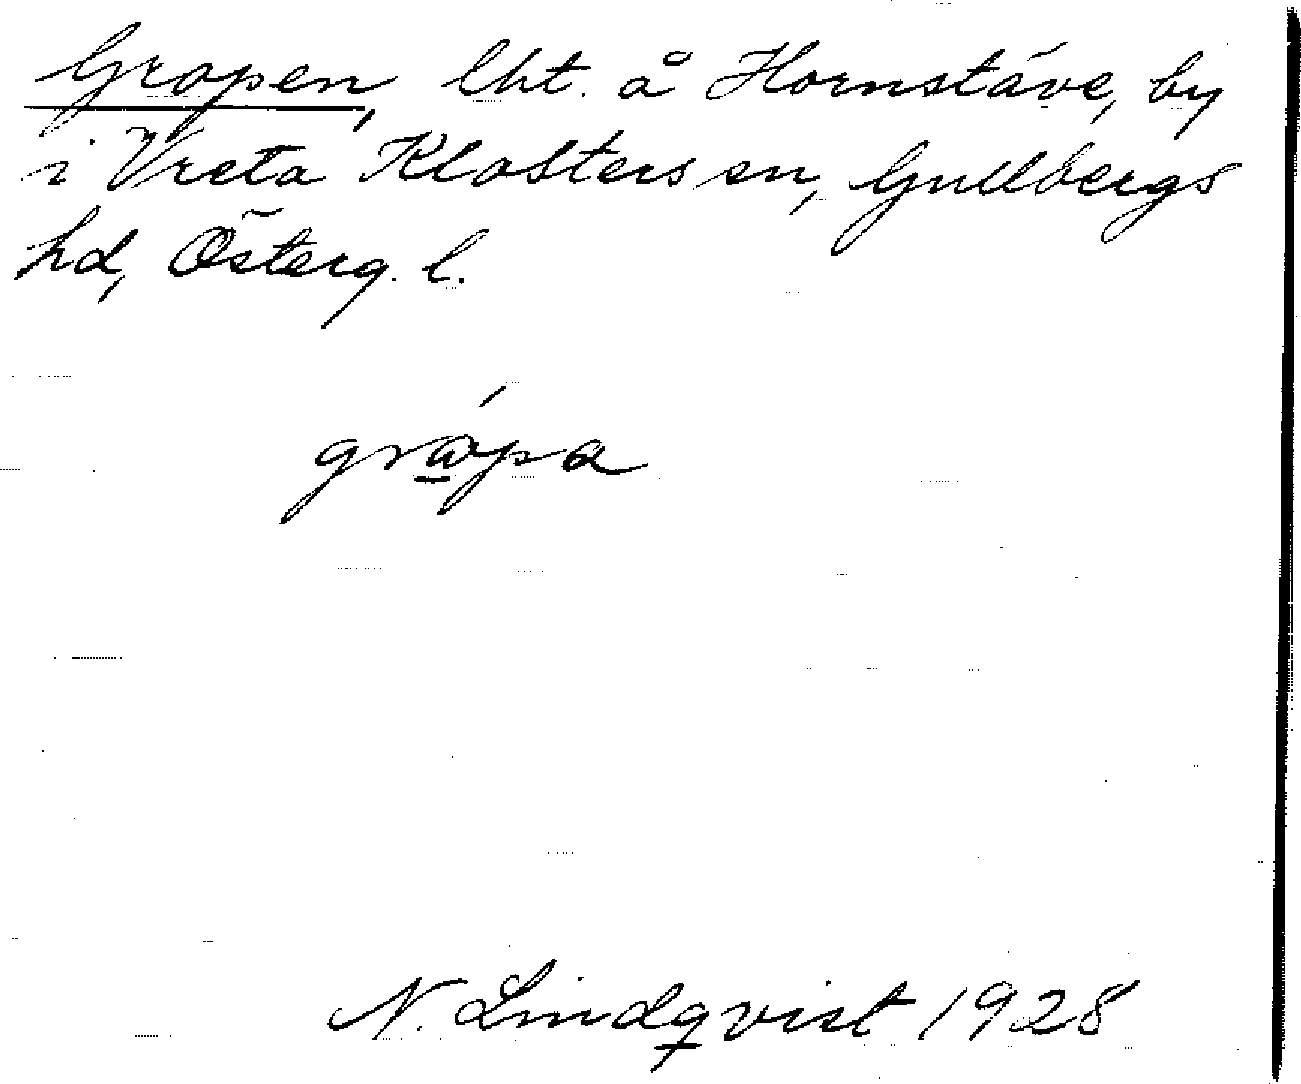 Gropen, lht. å Hornstäve, by
i Vreta Klosters sn, Gullbergs
hd, Österg. l.
gråpa
N. Lindqvist 1928